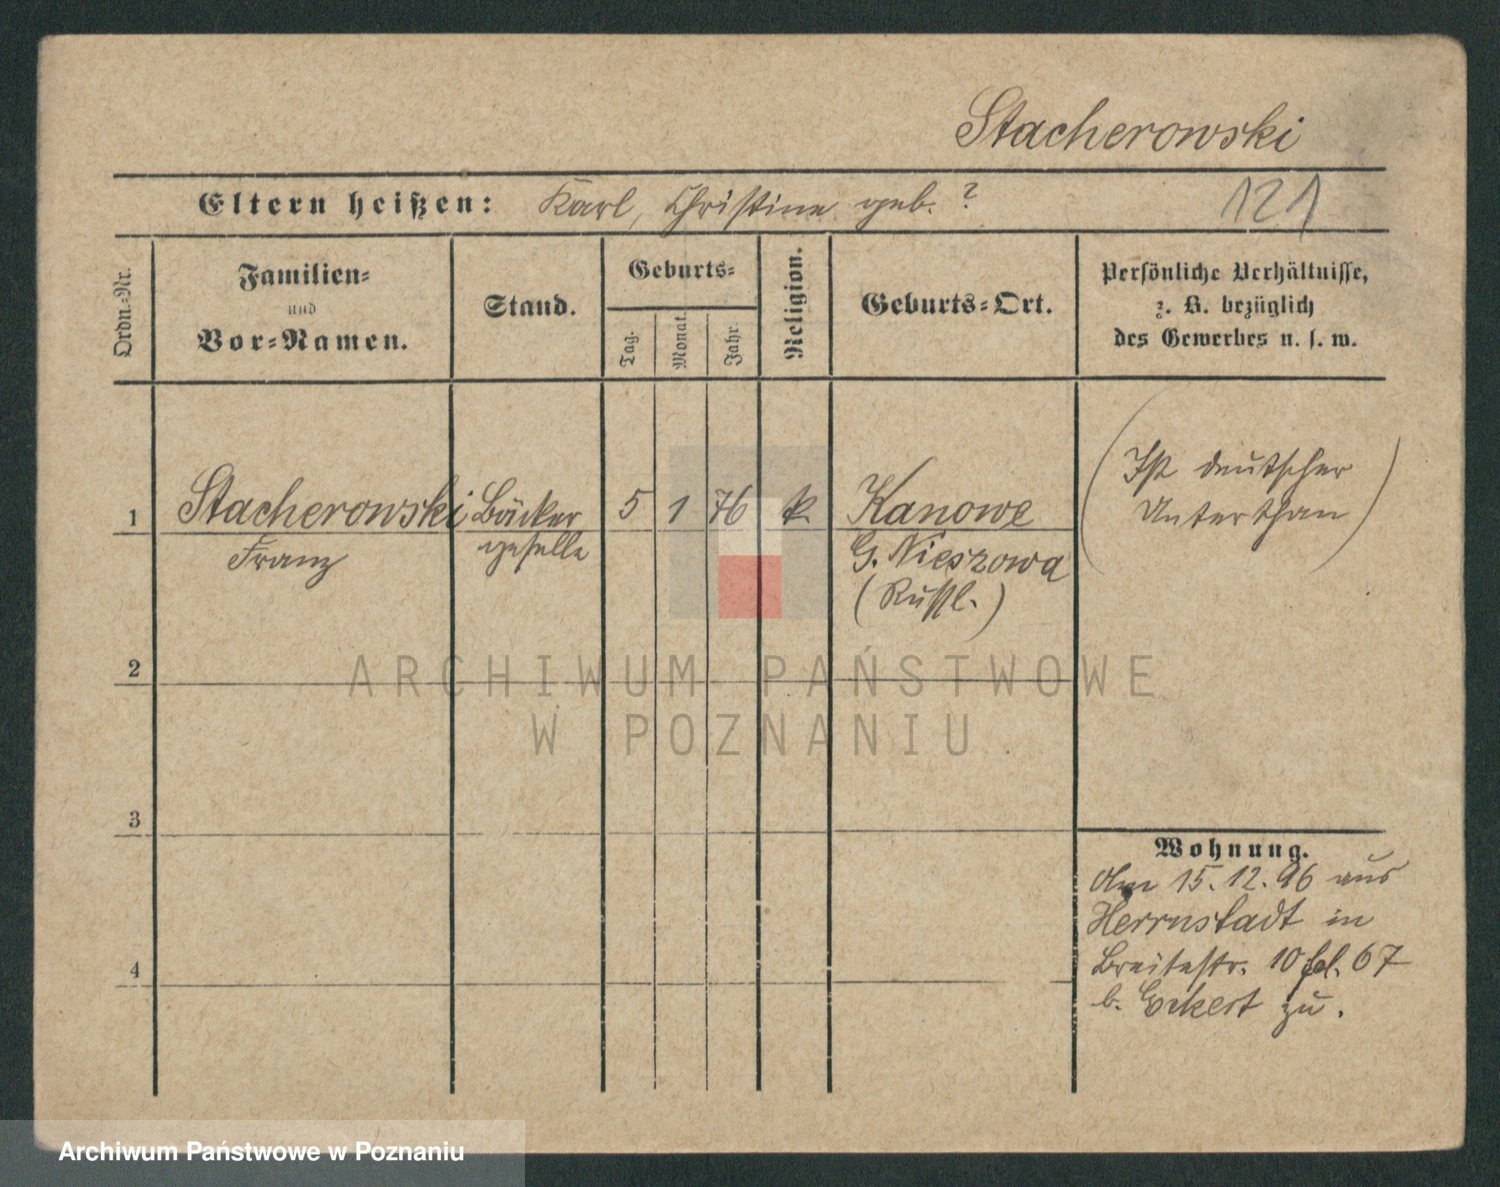 Stacherowski
Eltern heißen: Karl, Christine geb. ?
121
Ordn.-Nr.
Familien-
und
Vor-Namen.
Stand.
Geburts-
Tag.
Monat.
Jahr
Religion.
Geburts-Ort.
Persönliche Verhältnisse,
z. B. bezüglich
des Gewerbes u. s. w.
1
Stacherowski
Franz
Bäcker
geselle
5
1
76
k.
Kanowe
G. Nieszowa
(Rußl.)
(Ist deutscher
Unterthan)
2
3
4
Wohnung.
Am 15.12.96 aus
Herrnstadt in
Breitestr. 10 fol. 67
b. Eckert zu.
ARCHIWUM PAŃSTWOWE
W POZNANIU
Archiwum Państwowe w Poznaniu